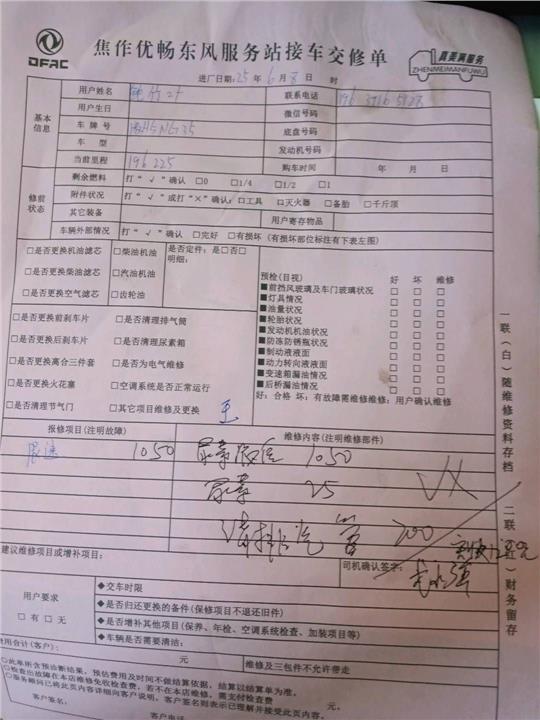 DFAC
焦作优畅东风服务站接车交修单
真美满服务
ZHENMEIMANFUWU
进厂日期:25年6月8日 时
基本信息
用户姓名
联系电话
用户生日
微信号码
车牌号
底盘号码
车型
发动机号码
当前里程 196225
购车时间 年 月 日
修前状态
剩余燃料 打“√”确认 □0 □1/4 □1/2 □1
附件状况 打“√”或打“×”确认:□工具 □灭火器 □备胎 □千斤顶
其它装备
用户寄存物品
车辆外部情况 打“√”确认 □完好 □有损坏(有损坏部位标注有下表左图)
□是否更换机油滤芯 □柴油机油 是否定件:是□否□
明细:
□是否更换柴油滤芯 □汽油机油
□是否更换空气滤芯 □齿轮油
□是否更换前刹车片 □是否清理排气筒
□是否更换后刹车片 □是否清理尿素箱
□是否更换离合三件套 □是否为电气维修
□是否更换火花塞 □空调系统是否正常运行
□是否清理节气门 □其它项目维修及更换
预检(目视) 好 坏 维修
■前挡风玻璃及车门玻璃状况 □ □ □
■灯具情况 □ □ □
■油量状况 □ □ □
■轮胎状况 □ □ □
■发动机机油状况 □ □ □
■防冻防锈瓶状况 □ □ □
■制动液液面 □ □ □
■动力转向液液面 □ □ □
■变速箱漏油情况 □ □ □
■后桥漏油情况 □ □ □
好:合格 坏:有故障需维修维修:用户确认维修
报修项目(注明故障)
维修内容(注明维修部件)
限速 1050
尿素 1050
尿素 25
清排汽管 200
建议维修项目或增补项目:
司机确认签字:
用户要求
□有□无
◆交车时限
◆是否归还更换的备件(保修项目不退还旧件)
◆是否增补其他项目(保养、年检、空调系统检查、加装项目等)
◆车辆是否需要清洁:
费用合计(客户): 元
维修及三包件不允许带走
○此单所含预诊断结果,预估费用及时间不做结算依据,结算以结算单为准。
○检查出故障在本店维修免收检查费,若不在本店维修,需支付检查费 元
○服务顾问已将此页内容详细向客户说明,客户签名则表示已理解并接受此页内容。
客户签名:
客户电话
一联(白)随维修资料存档
二联(红)财务留存